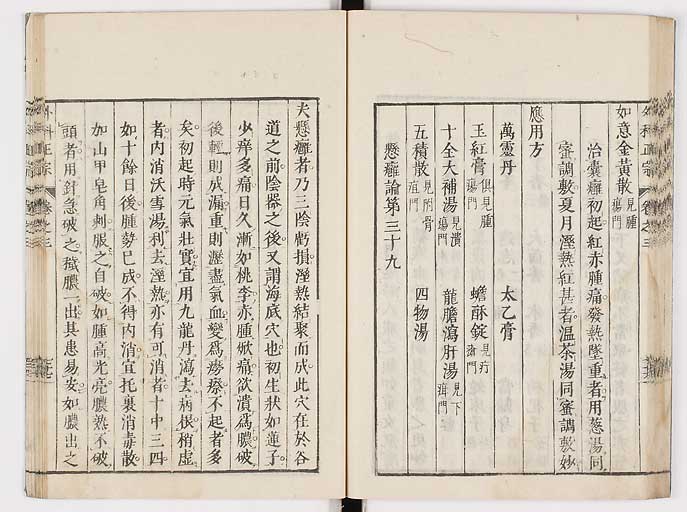 如意金黃散 見腫瘍門
治囊癰初起紅赤腫痛發熱墜重者用葱湯同
蜜調敷夏月溼熱紅甚者溫茶湯同蜜調敷妙
應用方
萬靈丹 太乙膏
玉紅膏 俱見腫瘍門 蟾酥錠 見疔瘡門
十全大補湯 見潰瘍門 龍膽瀉肝湯 見下疳門
五積散 見附骨疽門 四物湯
懸癰論第三十九
夫懸癰者乃三陰虧損溼熱結聚而成此穴在於谷
道之前陰器之後又謂海底穴也初生狀如蓮子
少痒多痛日久漸如桃李赤腫焮痛欲潰為膿破
後輕則成漏重則瀝盡氣血變為癆瘵不起者多
矣初起時元氣壯實宜用九龍丹瀉去病根稍虛
者内消沃雪湯利去溼熱亦有可消者十中三四
如十餘日後腫勢已成不得内消宜托裏消毒散
加山甲皂角刺服之自破如腫高光亮膿熟不破
頭者用針急破之穢膿一出其患易安如膿出之
外科正宗 卷之三
外科正宗 卷之三